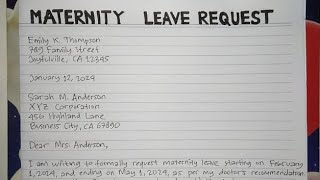 MATERNITY LEAVE REQUEST
Emily K. Thompson
789 Family Street
Joyfulville, CA 12345
January 12, 2024
Sarah M. Anderson
XYZ Corporation
456 Highland Lane
Business City, CA 67890
Dear Mrs. Anderson,
I am writing to formally request maternity leave starting on February
1, 2024, and ending on May 1, 2024, as per my doctor's recommendation.